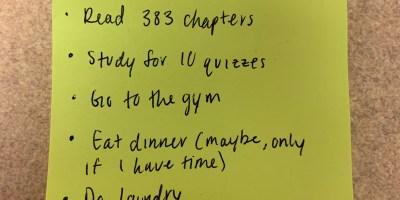 • Read 383 chapters
• Study for 10 quizzes
• Go to the gym
• Eat dinner (maybe, only
if I have time)
• Do laundry